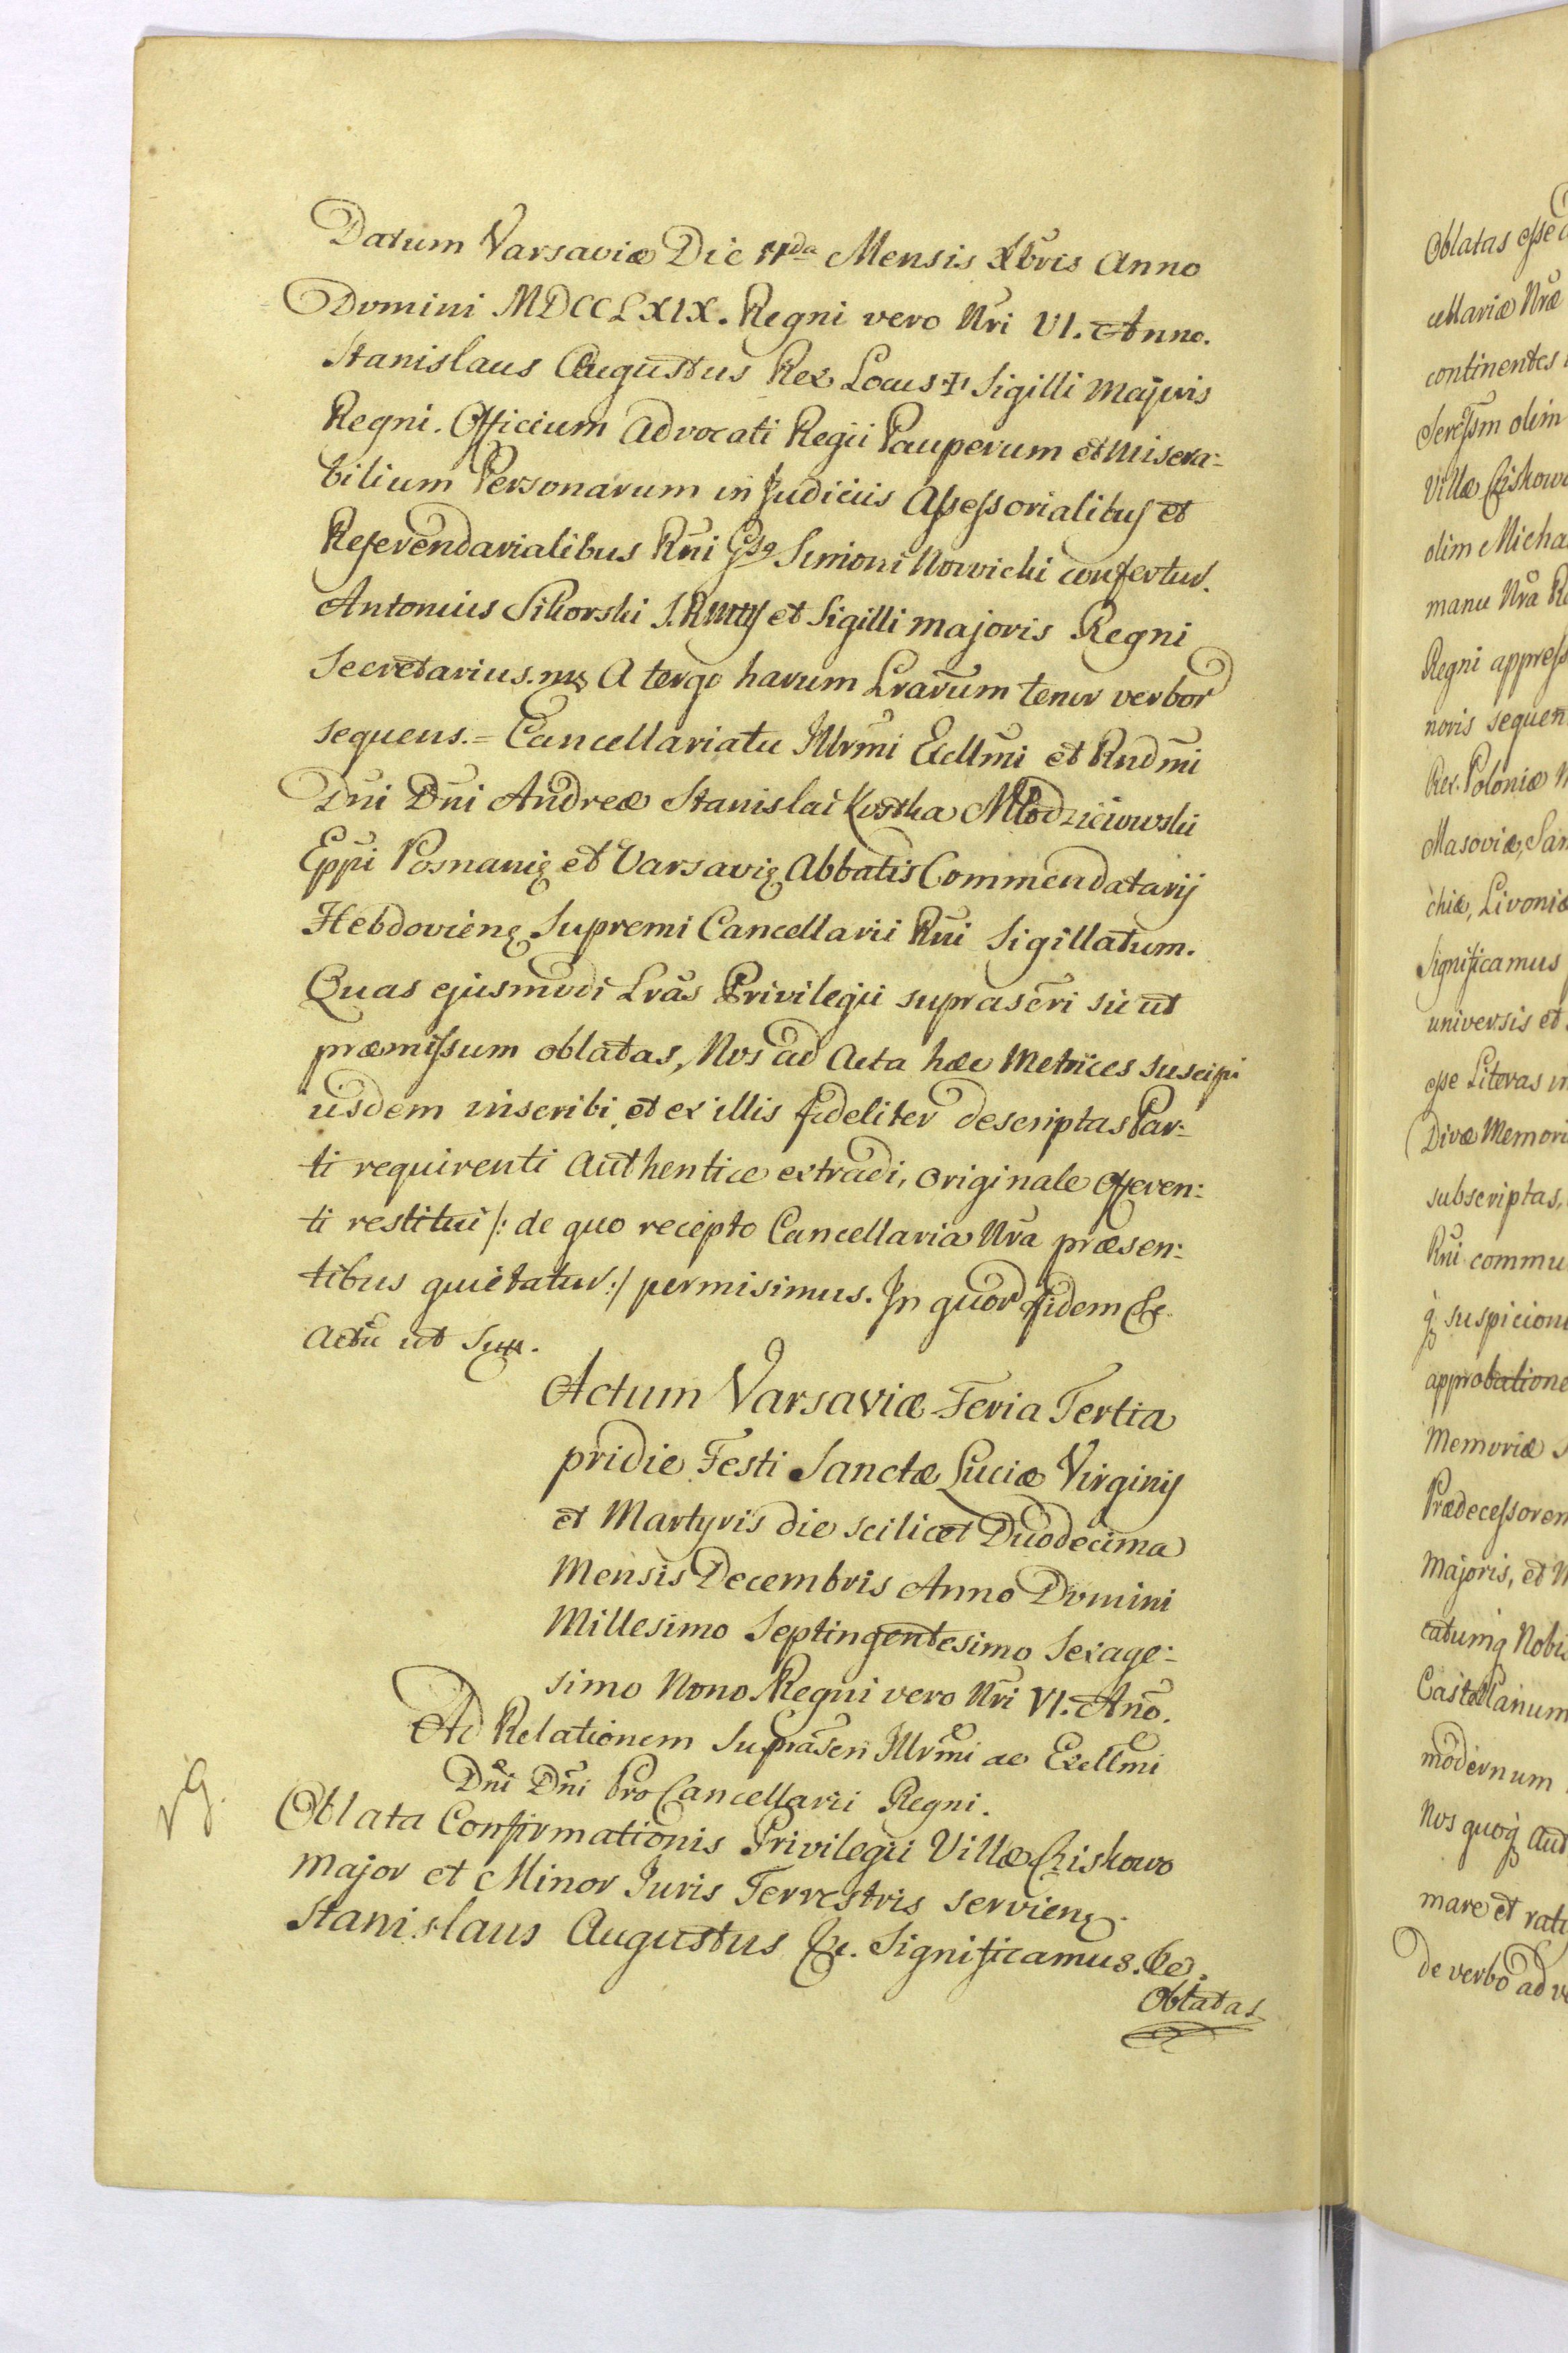 Datum Varsaviæ Die 11da Mensis Xbris Anno
Domini MDCCLXIX. Regni vero Nri VI. Anno.
Stanislaus Augustus Rex Locus + Sigilli Majoris
Regni. Officium Advocati Regii Pauperum et Misera:
bilium Personarum in Judiciis Assessorialibus et
Referendarialibus Rni Simoni Nowicki confertur.
Antonius Sikorski S. R. Mttis et Sigilli majoris Regni
Secretarius. mp A tergo harum Lrarum tenor verbor
sequens. = Cancellariatu Illrmi Excllmi et Rndmi
Dni Dni Andreæ Stanislai Kostka Młodzieiowski
Eppi Posnanię et Varsavię Abbatis Commendatarij
Hebdovienę Supremi Cancellarii Rni Sigillatum.
Quas ejusmodi Lras Privilegii suprascri sicut
præmissum oblatas, Nos ad Acta hæc Metrices suscipi
iisdem inscribi, et ex illis fideliter descriptas Par:
ti requirenti Authentice extradi, originale offeren:
ti restitui /: de quo recepto Cancellaria Nra præsen:
tibus quietatur :/ permisimus. In quor fidem &c.
Actu ut Supr.
Actum Varsaviæ Feria Tertia
pridie Festi Sanctæ Luciæ Virginis
et Martyris die scilicet Duodecima
Mensis Decembris Anno Domini
Millesimo Septingentesimo Sexage:
simo Nono Regni vero Nri VI. Ano.
Ad Relationem Suprascri Illrmi ac Excllmi
Dni Dni Pro Cancellarii Regni.
Oblata Confirmationis Privilegii Villæ Cziskowo
Major et Minor Juris Terrestris servienę.
Stanislaus Augustus &c. Significamus. &c.
Oblatas
Oblatas esse
cellariæ Nræ
continentes
Serenssm olim
Villæ Cziskowo
olim Micha
manu Nra Re
Regni appress
noris sequen
Rex Poloniæ M
Masoviæ, Sam
chiæ, Livoniæ
Significamus
universis et
esse Literas in
Divæ Memori
subscriptas,
Rni commu
q suspicion
approbatione
Memoriæ S
Prædecessorem
Majoris, et M
catumq Nobis
Castellanum
modernum
Nos quoq Aut
mare et rati
de verbo ad ve